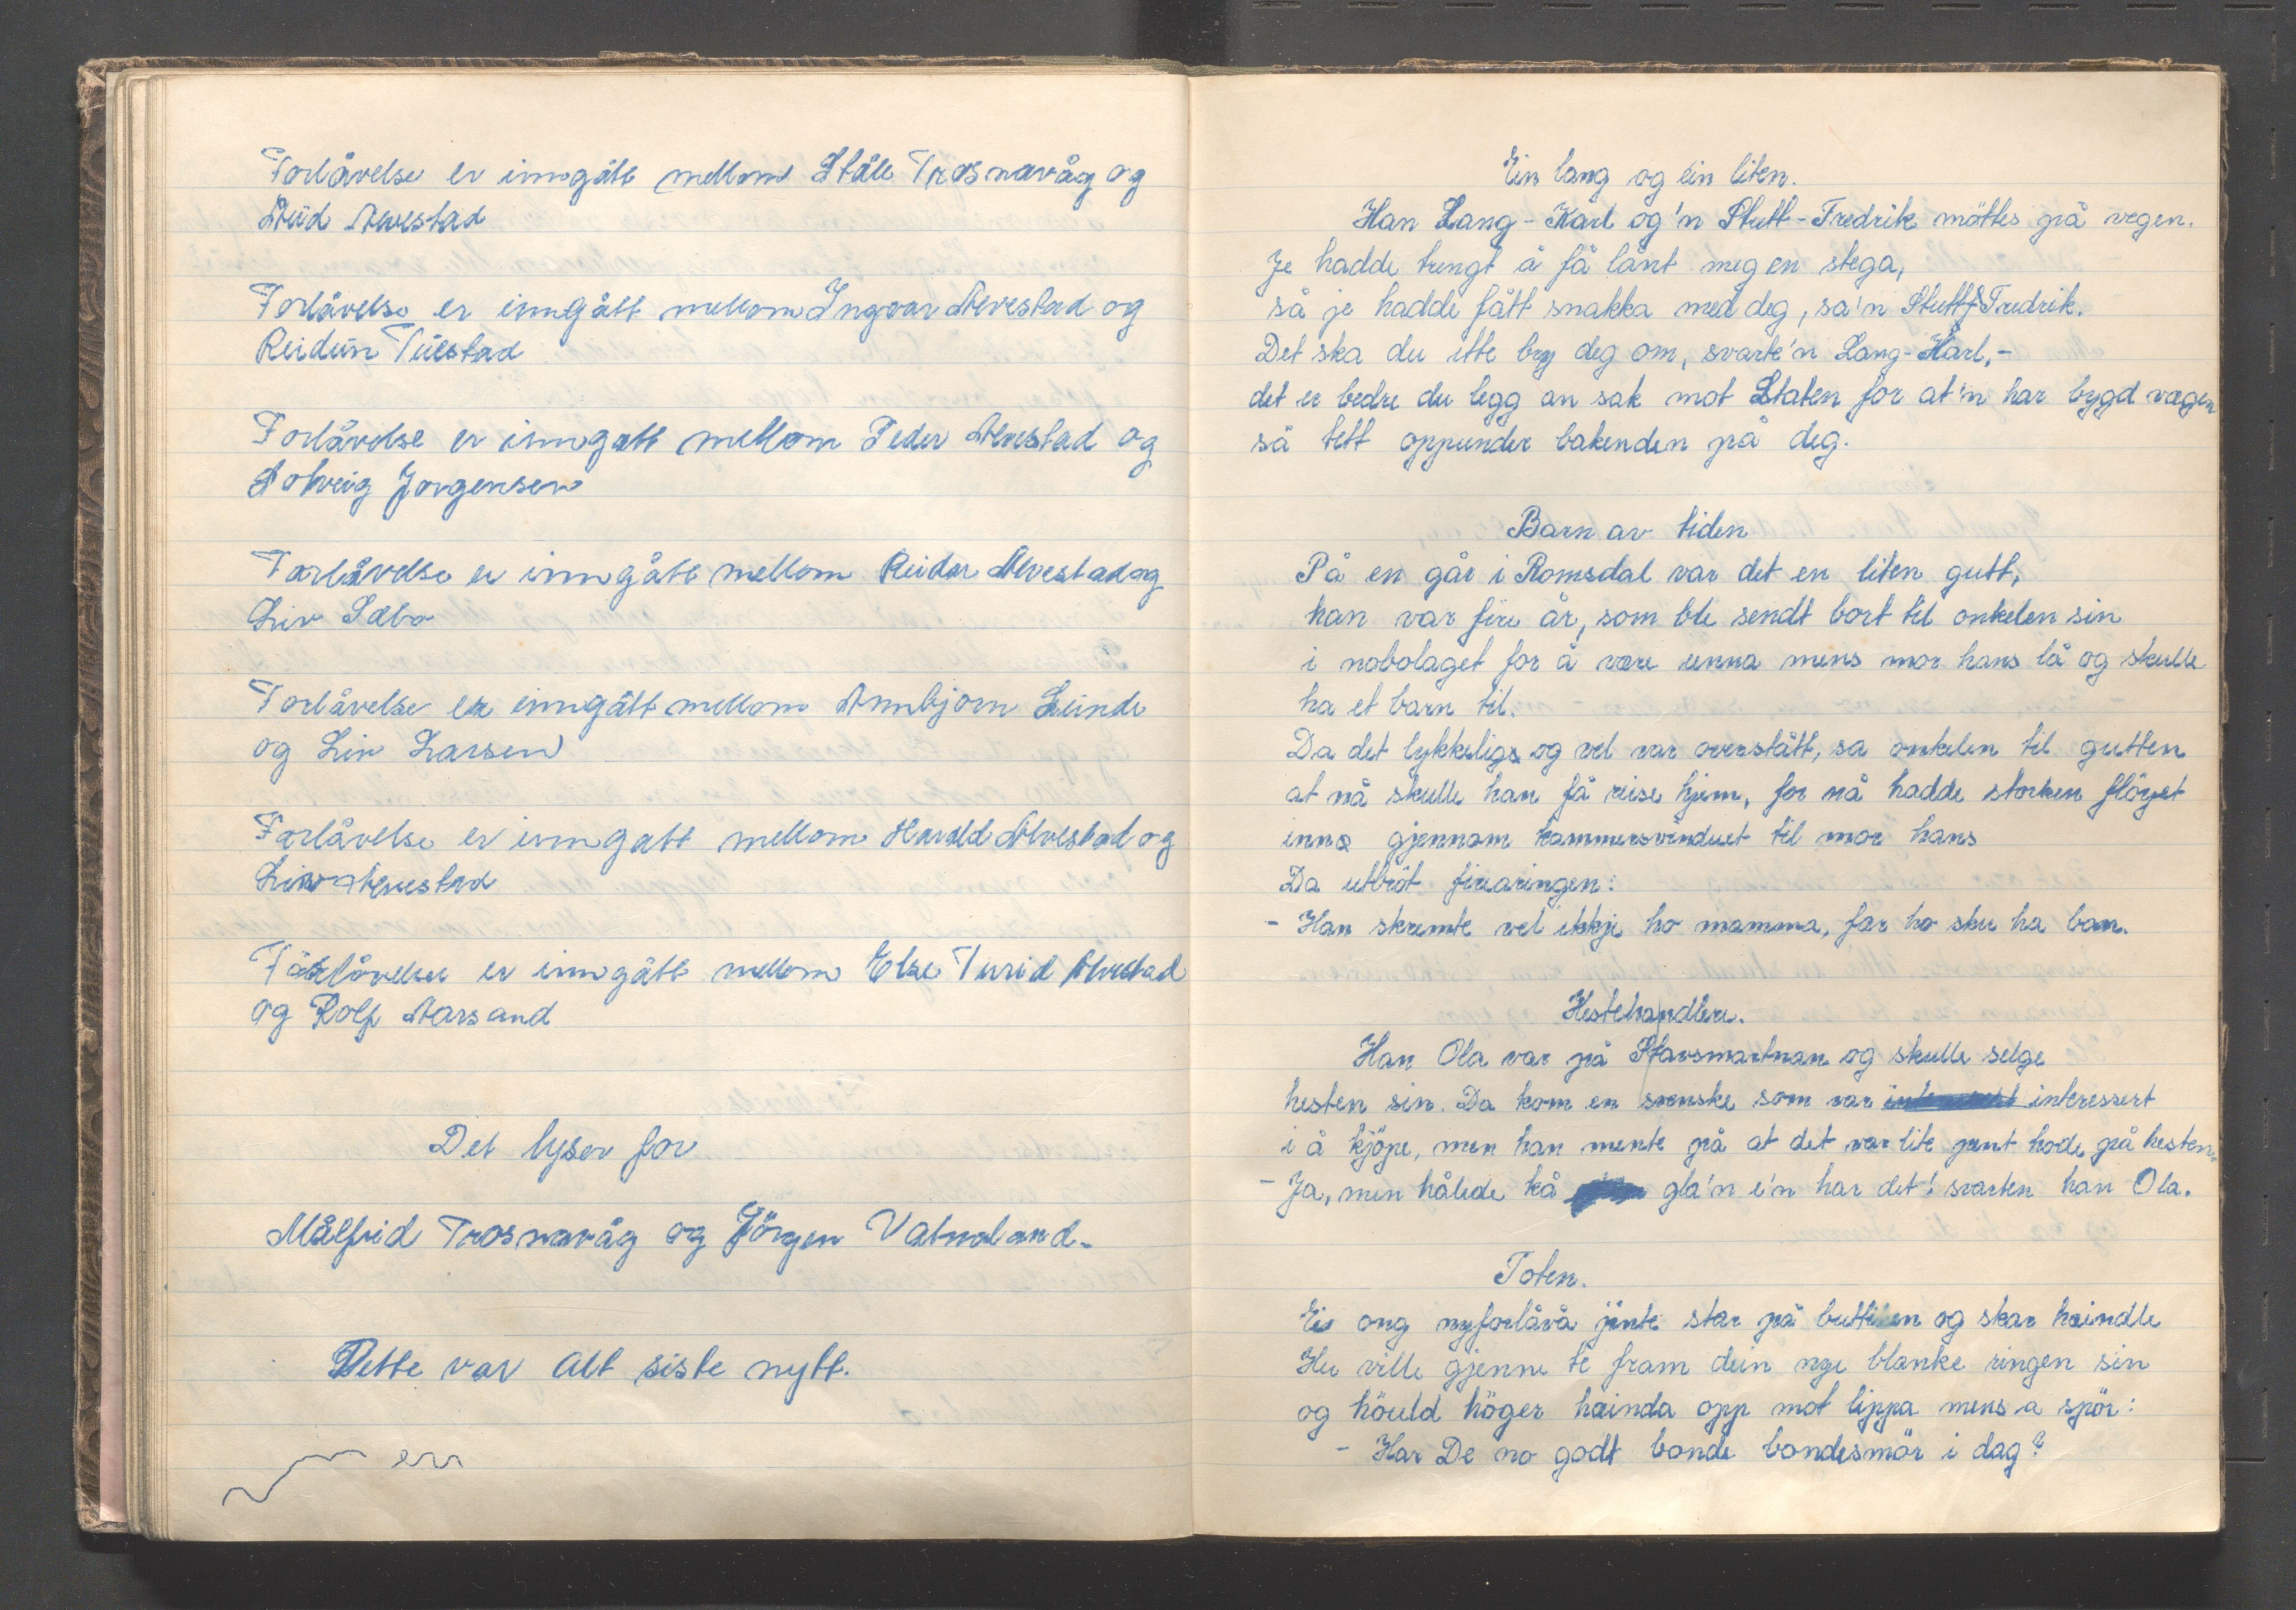 Forlåvelse er inngått mellom Ståle Trosnavåg og
Aud Alvestad
Forlåvelse er inngått mellom Ingvar Alvestad og
Reidun Tuestad
Forlåvelse er inngatt mellom Peder Alvestad og
Solveig Jorgensen
Forlåvelse er inngått mellom Reidar Alvestad og
Liv Sæbo
Forlåvelse er inngått mellom Arnbjorn Lunde
og Liv Larsen
Forlåvelse er inngatt mellom Harald Alvestad og
Liv Alvestad
Forlåvelse er inngått mellom Else Turid Alvestad
og Rolf Aarsand
Det lyser for
Målfrid Trosnavåg og Jörgen Vatnaland.
Dette var alt siste nytt.
Ein lang og ein liten.
Han Lang-Karl og'n Stutt-Fredrik möttes på vegen.
Je hadde trengt å få lånt meg en stega,
så je hadde fått snakka med deg, sa'n Stutt-Fredrik.
Det ska du itte bry deg om, svarte'n Lang-Karl,-
det er bedre du legg an sak mot Staten for at'n har bygd vægen
så tett oppunder bakenden på deg.
Barn av tiden
På en går i Romsdal var det en liten gutt,
han var fire år, som ble sendt bort til onkelen sin
i nobolaget for å være unna mens mor hans lå og skulle
ha et barn til.
Da det lykkeligs og vel var overstått, sa onkelen til gutten
at nå skulle han få reise hjem, for nå hadde storken flöyet
inn gjennom kammersvinduet til mor hans
Da utbröt fireåringen:
- Han skremte vel ikkje ho mamma, for ho sku ha ban.
Hestehandlere.
Han Ola var på Starsmartnan og skulle selge
hesten sin. Da kom en svenske som var interessert
i å kjöpe, men han mente på at det var lite pent hode på hesten.
- Ja, men hålede kå gla'n e'n har det! svarten han Ola.
Toten.
Ei ong nyforlåvå jinte star på buttiken og skar haindle
Hu ville gjenne te fram dein nye blanke ringen sin
og höuld höger hainda opp mot lippa mens a spör:
- Har De no godt bonde bondesmör i dag?